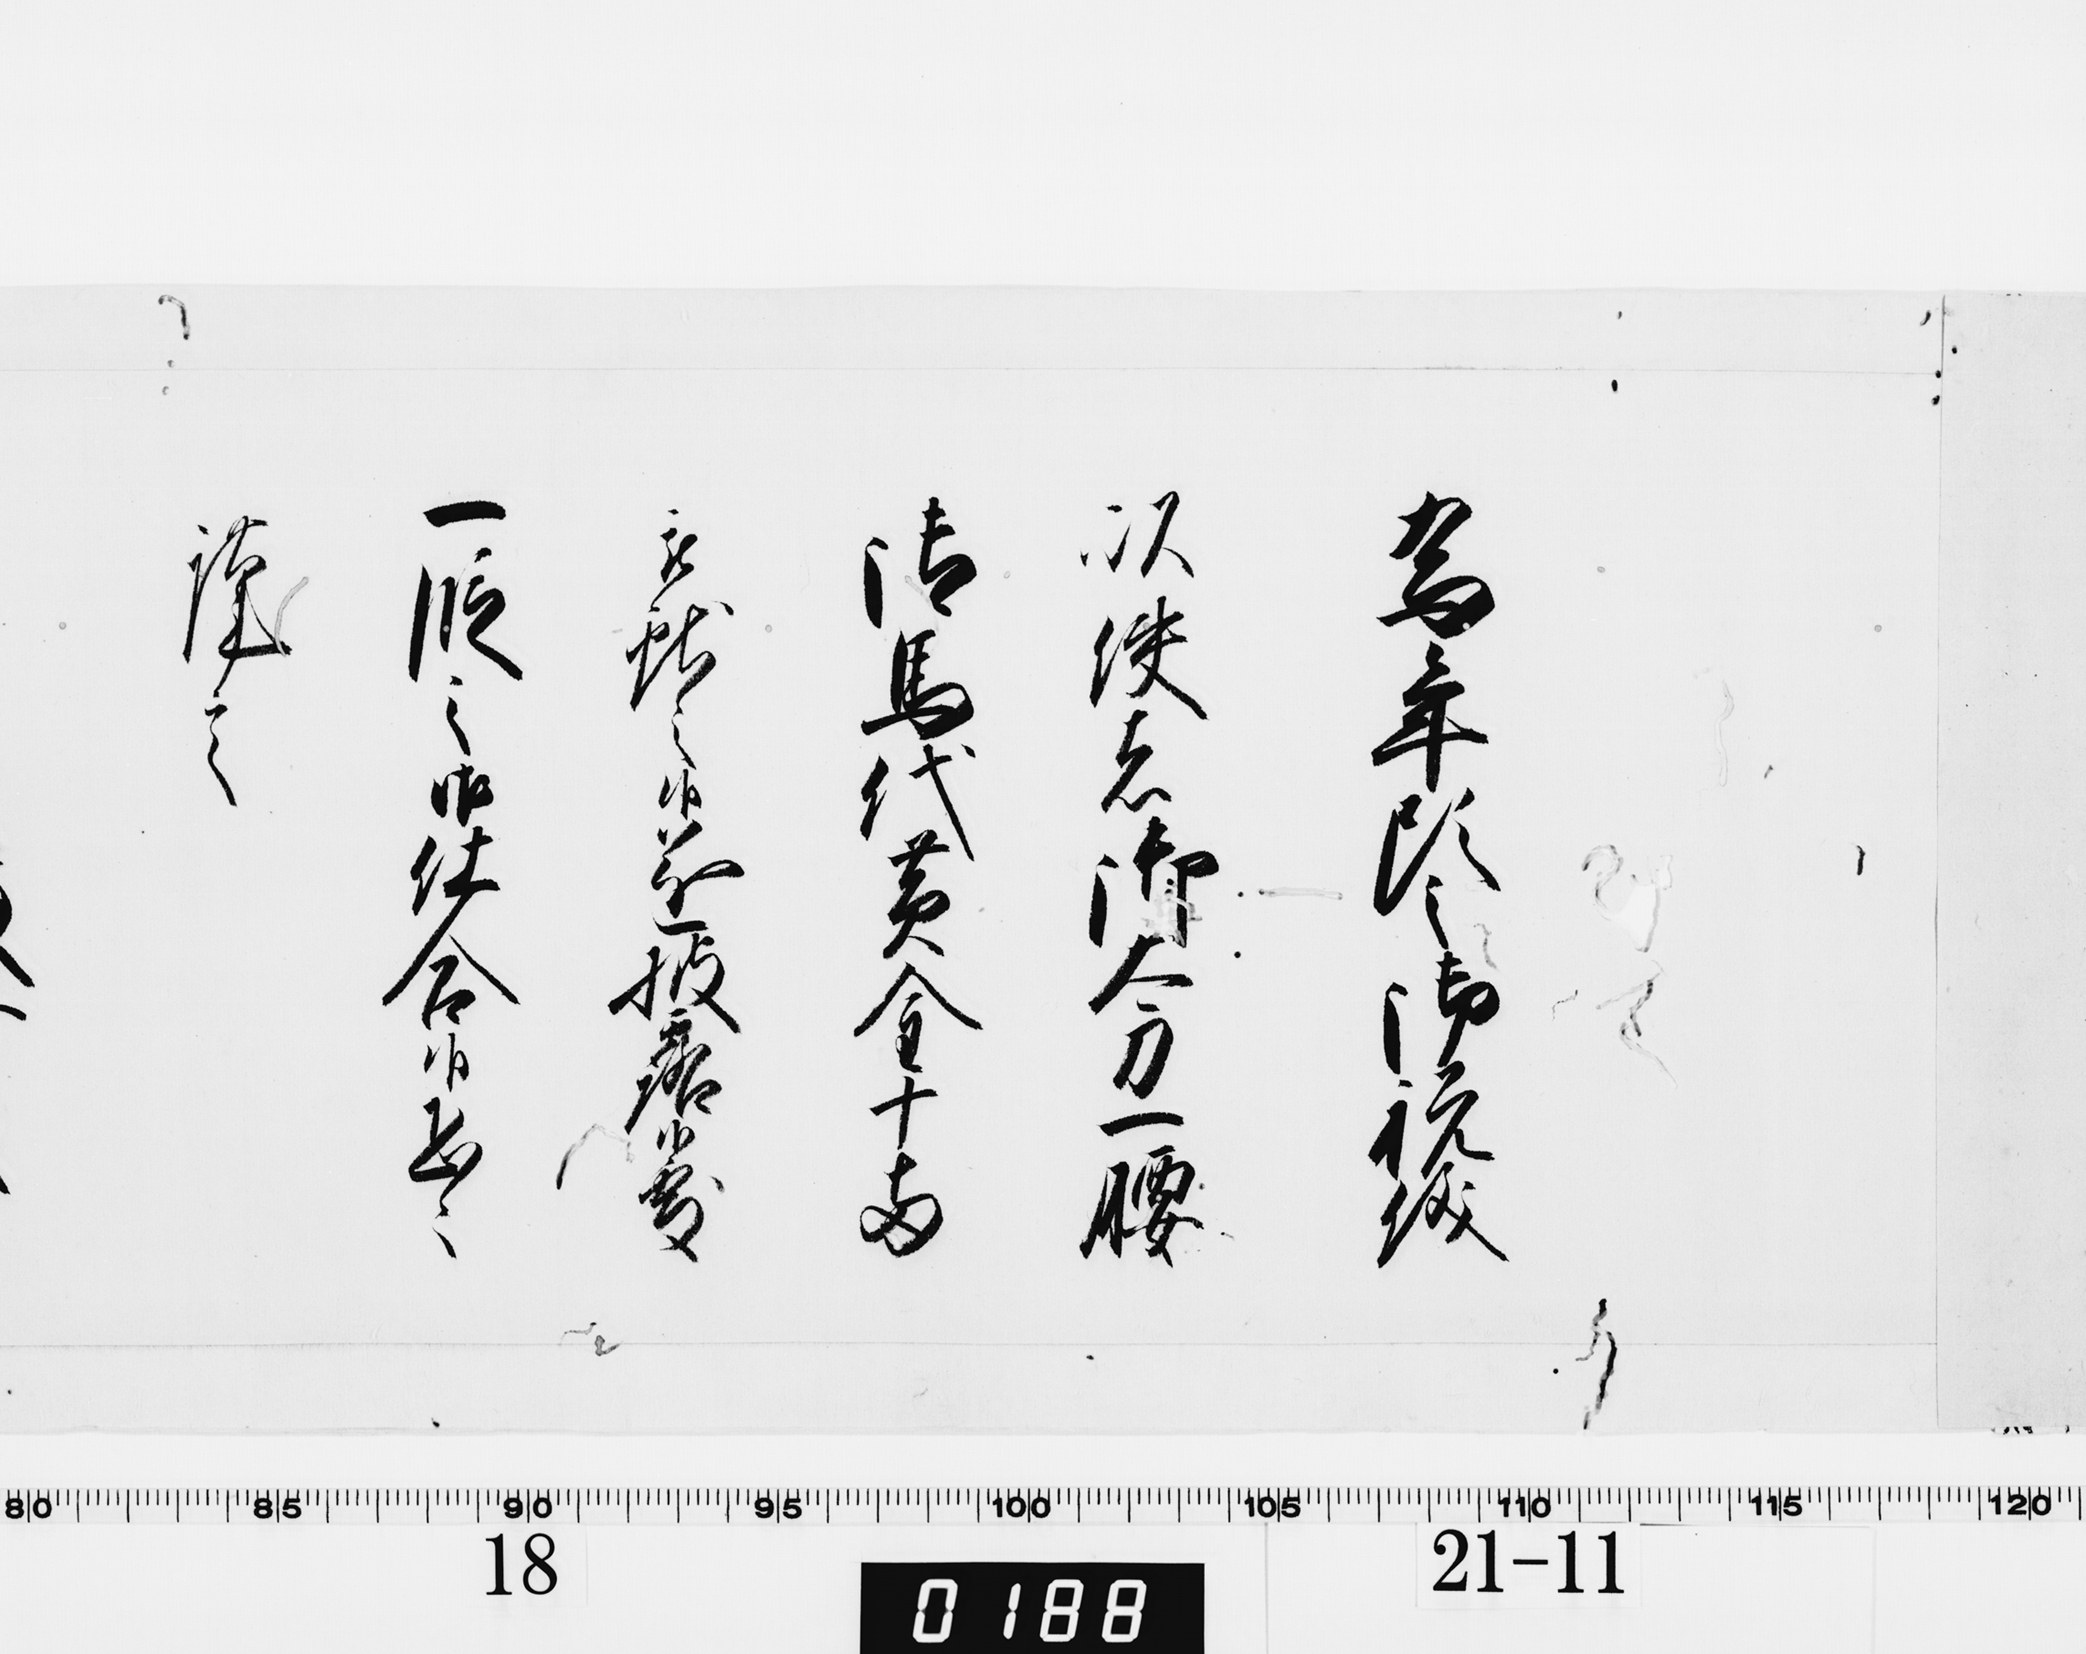 為年頭之御祝儀
以使者御太刀一腰
御馬代黄金十両
被献之候遂披露候處
一段之御仕合候恐々
謹言
80 85 90 95 100 105 110 115 120
18 0188 21-11